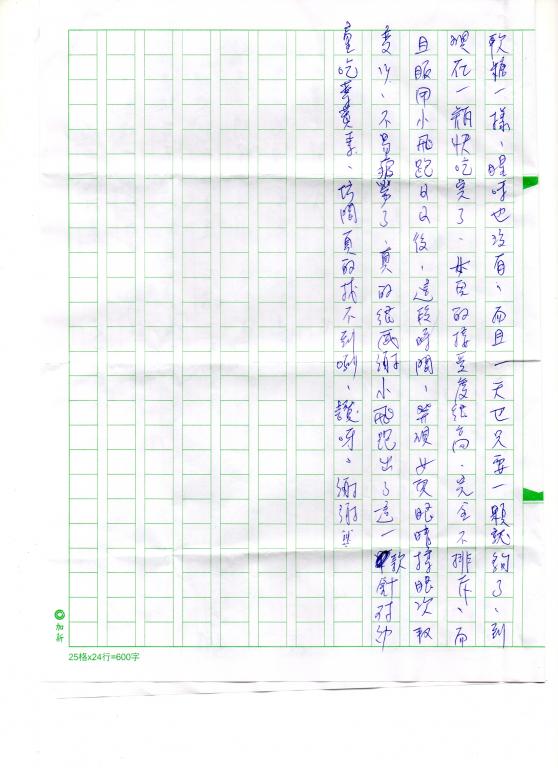 軟糖一樣、腥味也沒有、而且一天也只要一顆就夠了、到
現在一瓶快吃完了、女兒的接受度很高、完全不排斥、而
且服用小飛跑日日後，這段時間，發現女兒眼睛揉眼次數
變少、不易疲勞了、真的很感謝小飛跑出了這一款針對幼
童吃葉黃素、坊間真的找不到咧、讚呀。謝謝
加新
25格x24行=600字